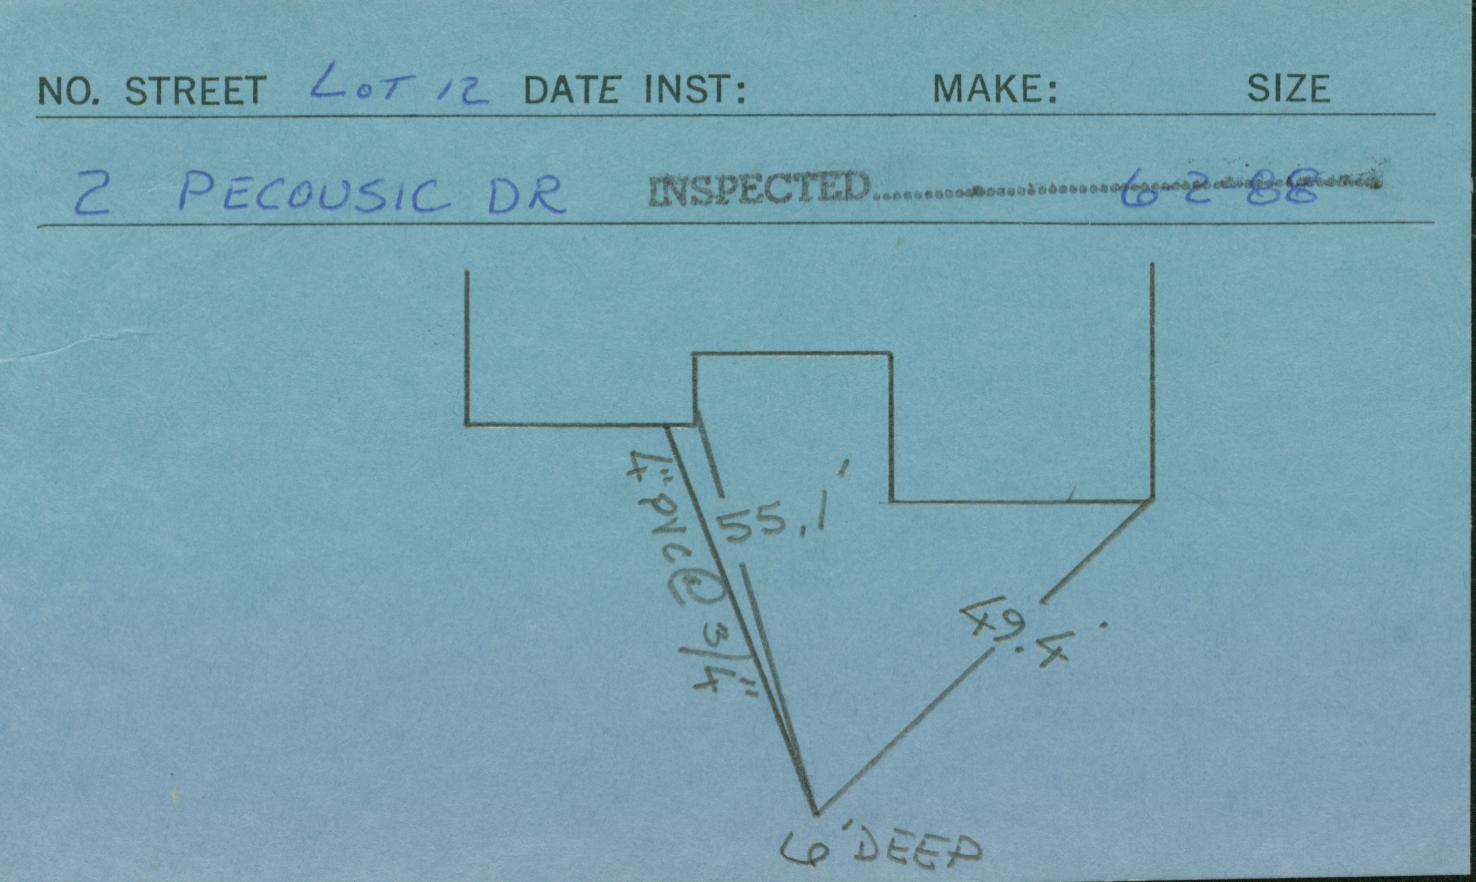 NO. STREET LOT 12 DATE INST: MAKE: SIZE
2 PECOUSIC DR INSPECTED.......... 6-2-88
55.1'
4" PVC @ 3/4"
49.4'
6' DEEP